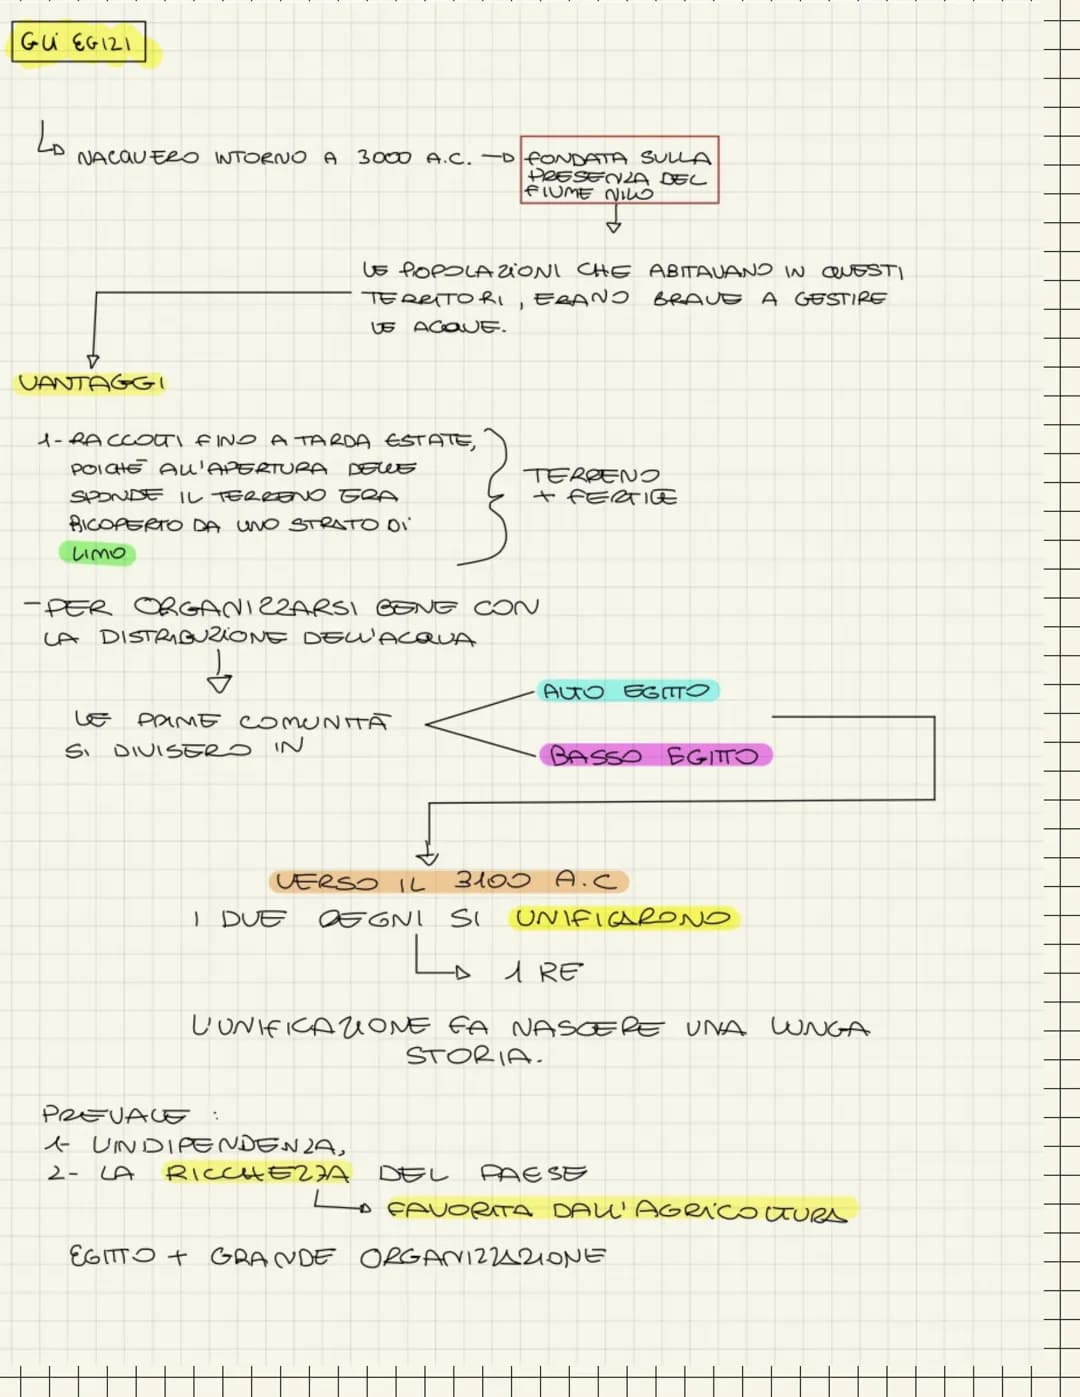 GLI EGIZI
NACQUERO INTORNO A 3000 A.C.
FONDATA SULLA
PRESENZA DEL
FIUME NILO
LE POPOLAZIONI CHE ABITAVANO IN QUESTI
TERRITORI, ERANO BRAVE A GESTIRE
LE ACQUE.
VANTAGGI
1- RACCOLTI FINO A TARDA ESTATE,
POICHÉ ALL'APERTURA DELLE
SPONDE IL TERRENO ERA
RICOPERTO DA UNO STRATO DI
LIMO
TERRENO
+ FERTILE
- PER ORGANIZZARSI BENE CON
LA DISTRIBUZIONE DELL'ACQUA
LE PRIME COMUNITÀ
SI DIVISERO IN
ALTO EGITTO
BASSO EGITTO
VERSO IL 3100 A.C
I DUE REGNI SI UNIFICARONO
1 RE
L'UNIFICAZIONE FA NASCERE UNA LUNGA
STORIA.
PREVALE :
1- L'INDIPENDENZA,
2- LA RICCHEZZA DEL PAESE
FAVORITA DALL'AGRICOLTURA
EGITTO + GRANDE ORGANIZZAZIONE